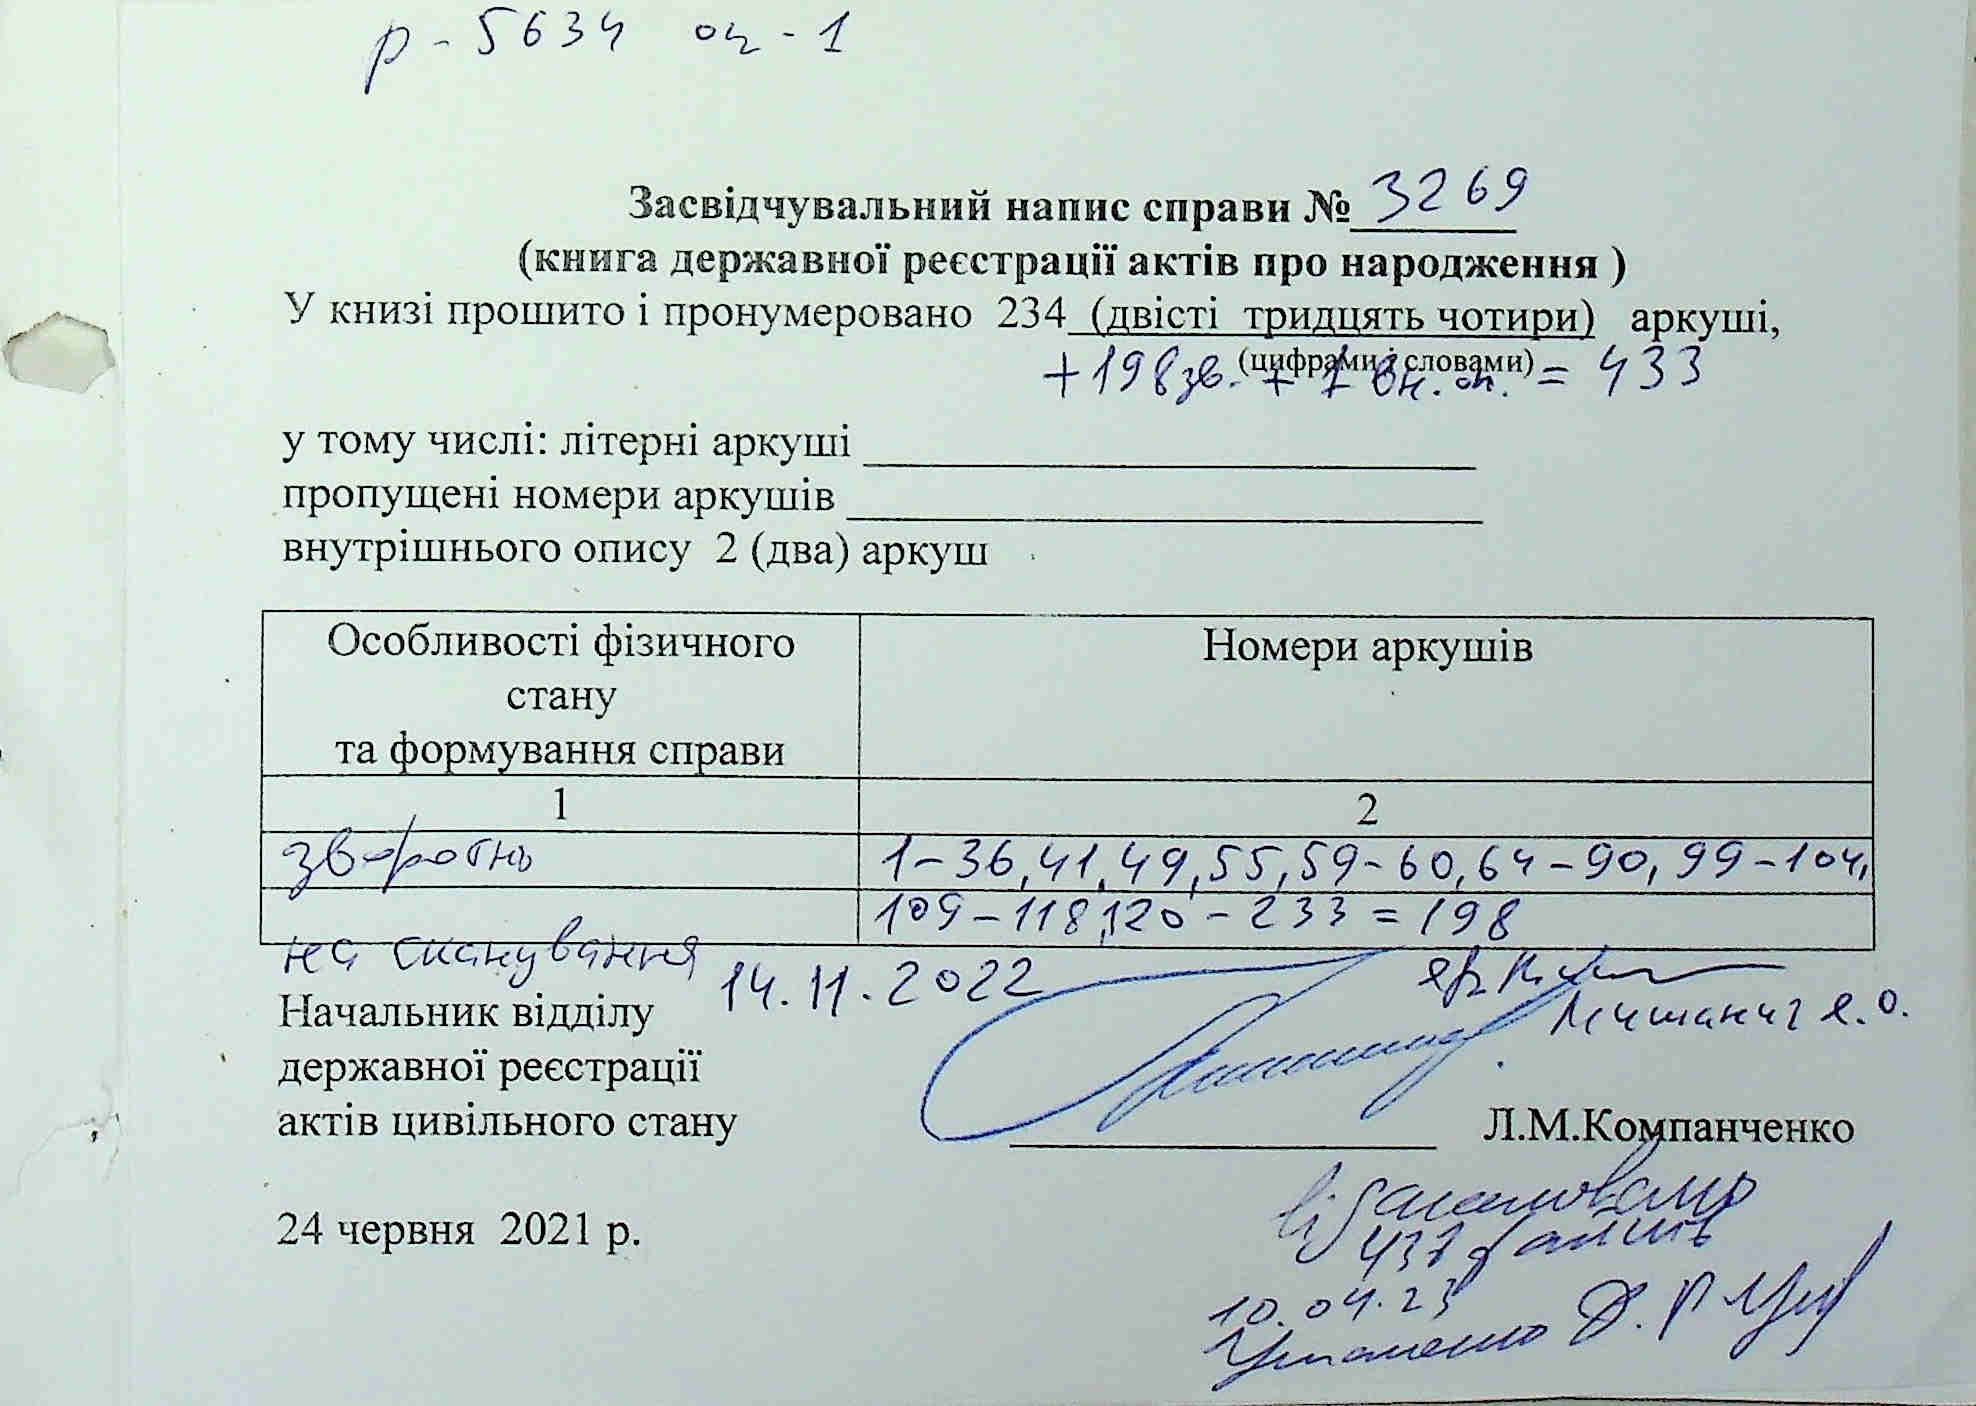 р - 5634 оп - 1
Засвідчувальний напис справи № 3269
(книга державної реєстрації актів про народження )
У книзі прошито і пронумеровано 234 (двісті тридцять чотири) аркуші,
(цифрами і словами)
+198зв. + 1 вн. оп. = 433
у тому числі: літерні аркуші
пропущені номери аркушів
внутрішнього опису 2 (два) аркуш
Особливості фізичного
стану
та формування справи
Номери аркушів
1
2
зворотнь
1-36,41,49,55,59-60,64-90,99-104,
109-118,120-233=198
на сканування
14.11.2022
Мишанич Я.О.
Начальник відділу
державної реєстрації
актів цивільного стану
Л.М.Компанченко
24 червня 2021 р.
Відскановано
файлів
10.04.23